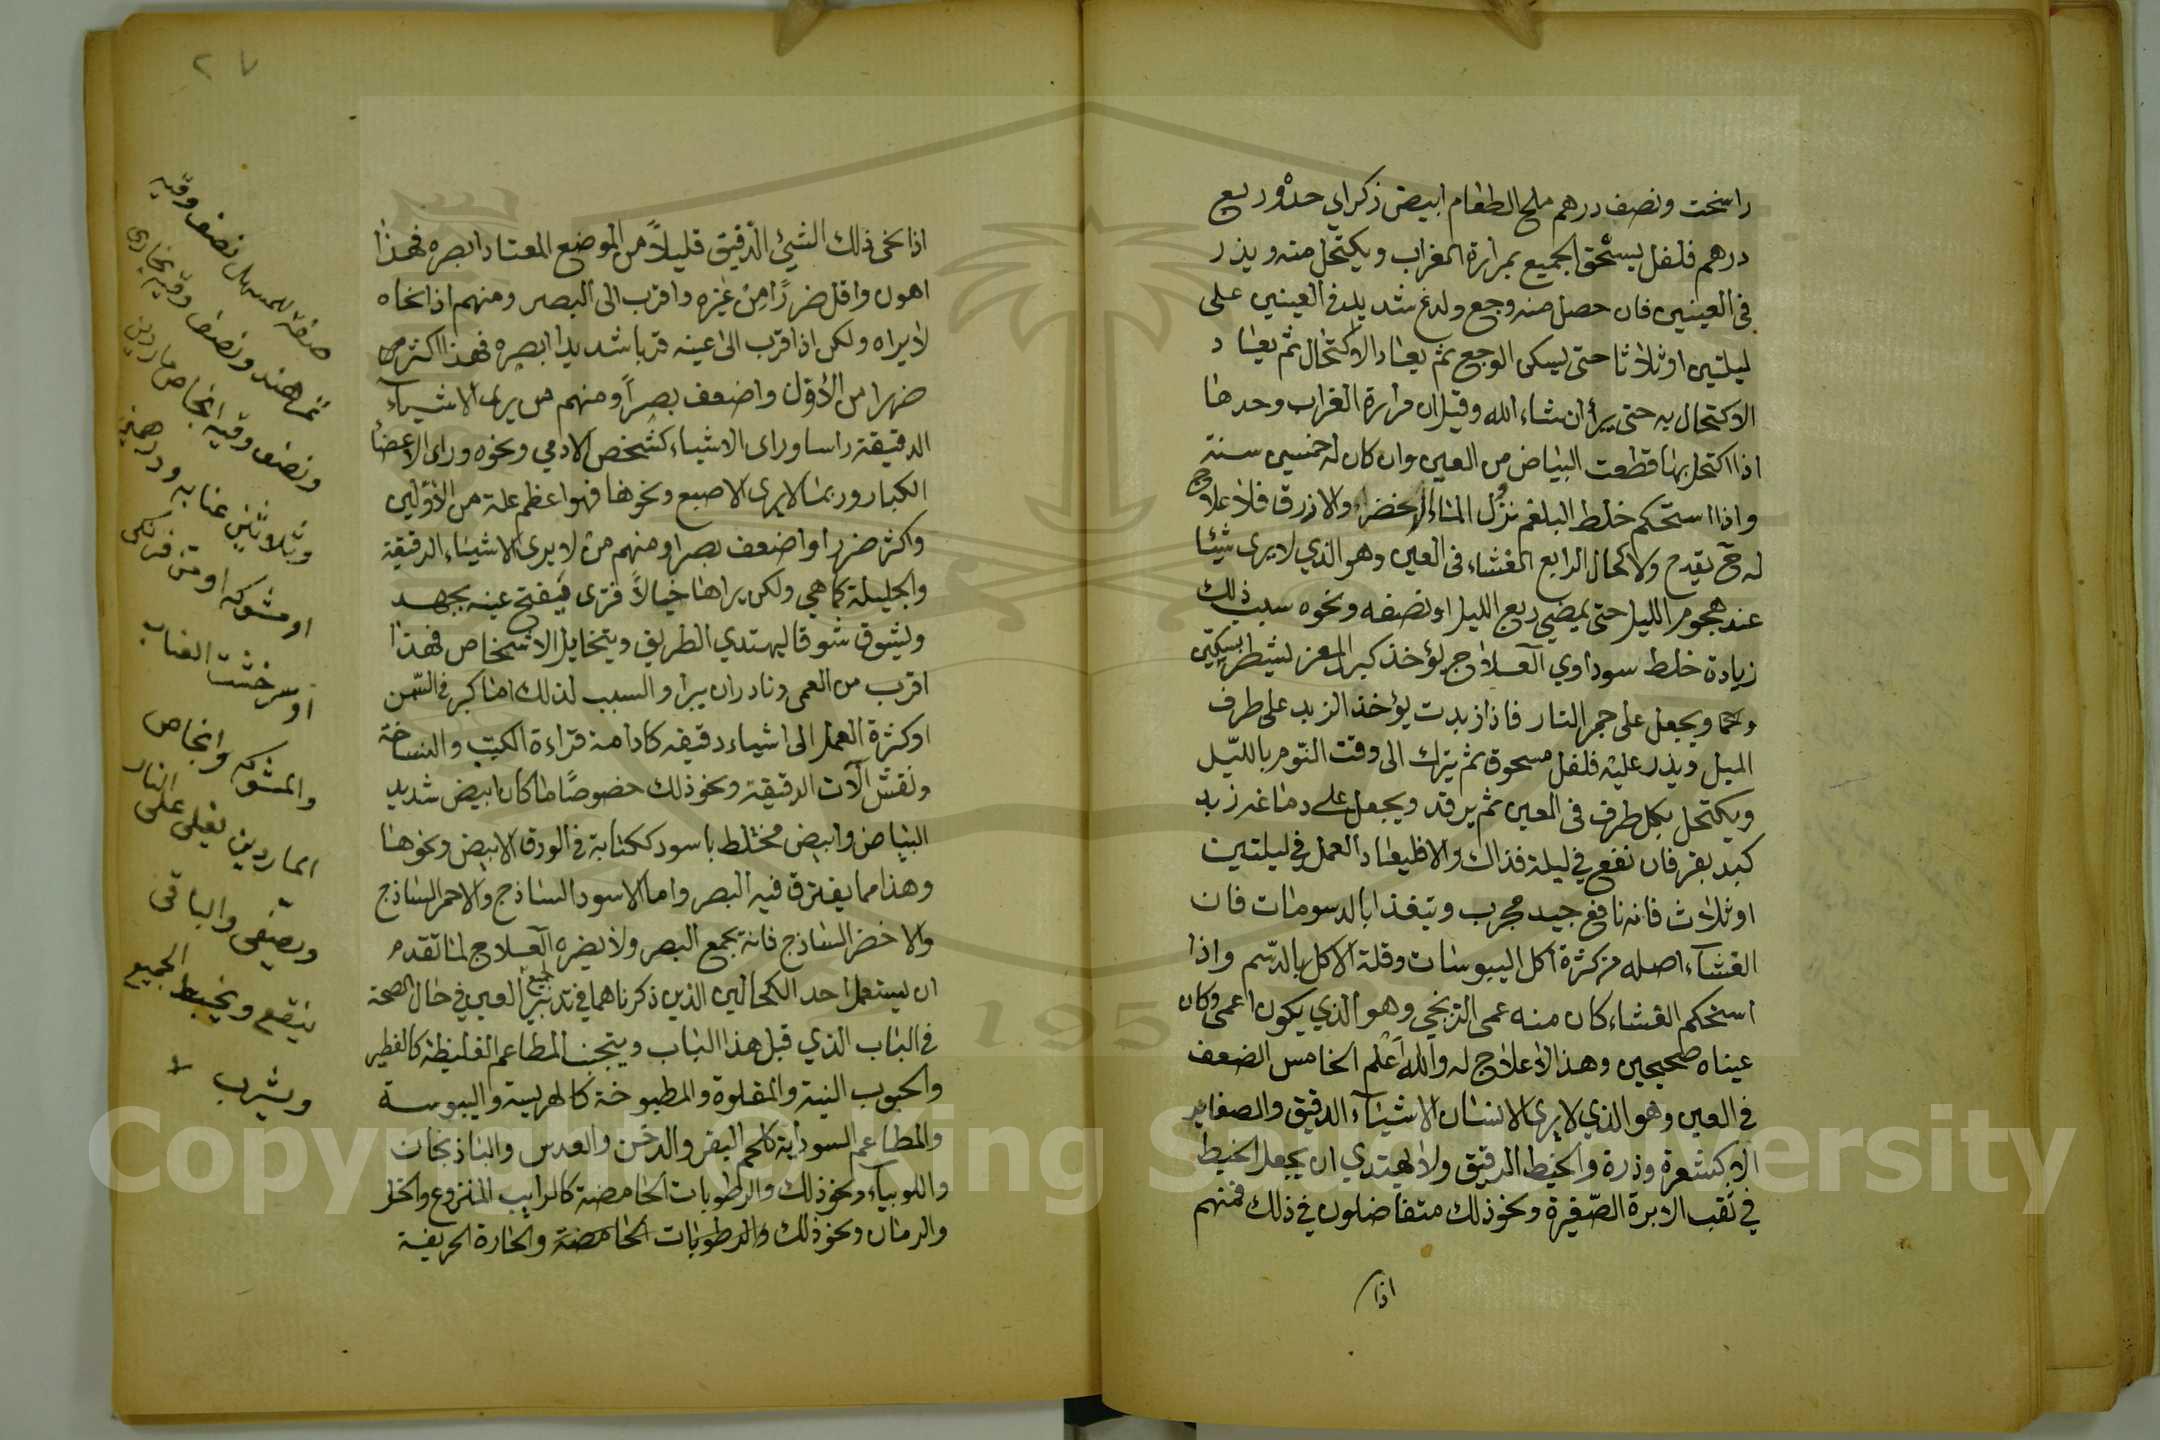 راسخت ونصف درهم ملح الطعام ابيض ذكراي حدْ وربع
درهم فلفل يستحق الجميع بمرارة الغراب ويكتحل منه ويذر
فى العينين فان حصل منه وجع ولدغ شديد فى العينين على
ليلتين او ثلاثا حتى يسكن الوجع ثم يعاد الاكتحال ثم يعاد
الاكتحال به حتى يبرأ ان شاء الله وقيل ان مرارة الغراب وحدها
اذا اكتحل بها قطعت البياض من العين وان كان له خمسين سنة
واذا استحكم خلط البلغم نزول الماء الاخضر والازرق فلا علاج
له حتى يقدح ولا كحال الرابع الغشاء فى العين وهو الذي لا يرى شيئا
عند هجوم الليل حتى يمضي ربع الليل او نصفه ونحوه سبب ذلك
زيادة خلط سوداوي العلاج يؤخذ كبد المعز يشطر بسكين
وحما ويجعل على جمر النار فاذا زبدت يؤخذ الزبد على طرف
الميل ويذر عليه فلفل مسحوق ثم يترك الى وقت النوم بالليل
ويكتحل بكل طرف فى العين ثم يرقد ويجعل على دماغه زبد
كبد بقر فان نفع في ليلة فذاك والا فليعاد العمل في ليلتين
او ثلاث فانه نافع جيد مجرب ويتغذا بالدسومات فان
الغشاء اصله من كثرة اكل اليبوسات وقلة الاكل بالدسم واذا
استحكم الغشاء كان منه عمى الزنجي وهو الذي يكون اعمى وكان
عيناه صحيحين وهذا لا علاج له والله اعلم الخامس الضعف
فى العين وهو الذي لا يرى الانسان الاشياء الدقيق والصغاير
الا كشعرة وذرة والخيط الدقيق ولا يهتدي ان يجعل الخيط
في ثقب الابرة الصغيرة ونحو ذلك متفاضلون في ذلك فمنهم
اذا
٢٧
اذا نحى ذلك الشيئ الدقيق قليلاً من الموضع المعتاد ابصره فهذا
اهون واقل ضررًا من غيره واقرب الى البصر ومنهم اذا نحاه
لا يراه ولكن اذا قرب الى عينه قربا شديدا ابصره فهذا اكثر من
ضررا من الاول واضعف بصراً ومنهم من يرى الاشياء
الدقيقة راسا وراى الاشياء كشخص الادمي ونحوه وراى الاعضاء
الكبار وربما لا يرى الاصبع ونحوها فهو اعظم علة من الاولين
واكثر ضررا واضعف بصرا ومنهم من لا يرى الاشياء الدقيقة
والجليلة كما هي ولكن يراها خيالاً فترى فيفتح عينه بجهد
ويشوق شوقا ليهتدي الطريق ويتخايل الاشخاص فهذا
اقرب من العمى ونادر ان يبرا والسبب لذلك اما كبر فى السن
او كثرة العمل الى اشياء دقيقه كادامة قراءة الكتب والنساخة
ونقش آلات الدقيقة ونحو ذلك خصوصًا ما كان ابيض شديد
البياض وابيض مختلط باسود ككتابة فى الورق الابيض ونحوها
وهذا مما يفترق فيه البصر واما الاسود الساذج والاحمر الساذج
والاخضر الساذج فانه يجمع البصر ولا يضره العلاج لما تقدم
ان يستعمل احد الكحالين الذين ذكرناهما في تدبير العين في حال الصحة
فى الباب الذي قبل هذا الباب ويتجنب المطاعم الغليظة كالفطير
والحبوب النية والمقلوة والمطبوخة كالهريسة واليبوسة
والمطاعم السوداية كلحم البقر والدخن والعدس والباذنجان
واللوبياء ونحو ذلك والرطوبات الحامضة كالرايب المنزوع والخل
والرمان ونحو ذلك والرطوبات الحامضة والحارة الحريفة
صفة المسهل نصف وقيه
تمر هند ونصف وقيه بخارى
ونصف وقيه انجاص ماردين
وثلاثين عنابه ودرهمين
او مشوكه او من فرنكى
او سرخشت العناب
والمشوكه وانجاص
الماردين يغلى على النار
ويصفى والباقى
ينقع ويخبط الجميع
ويشرب
Copyright © King Saud University
195